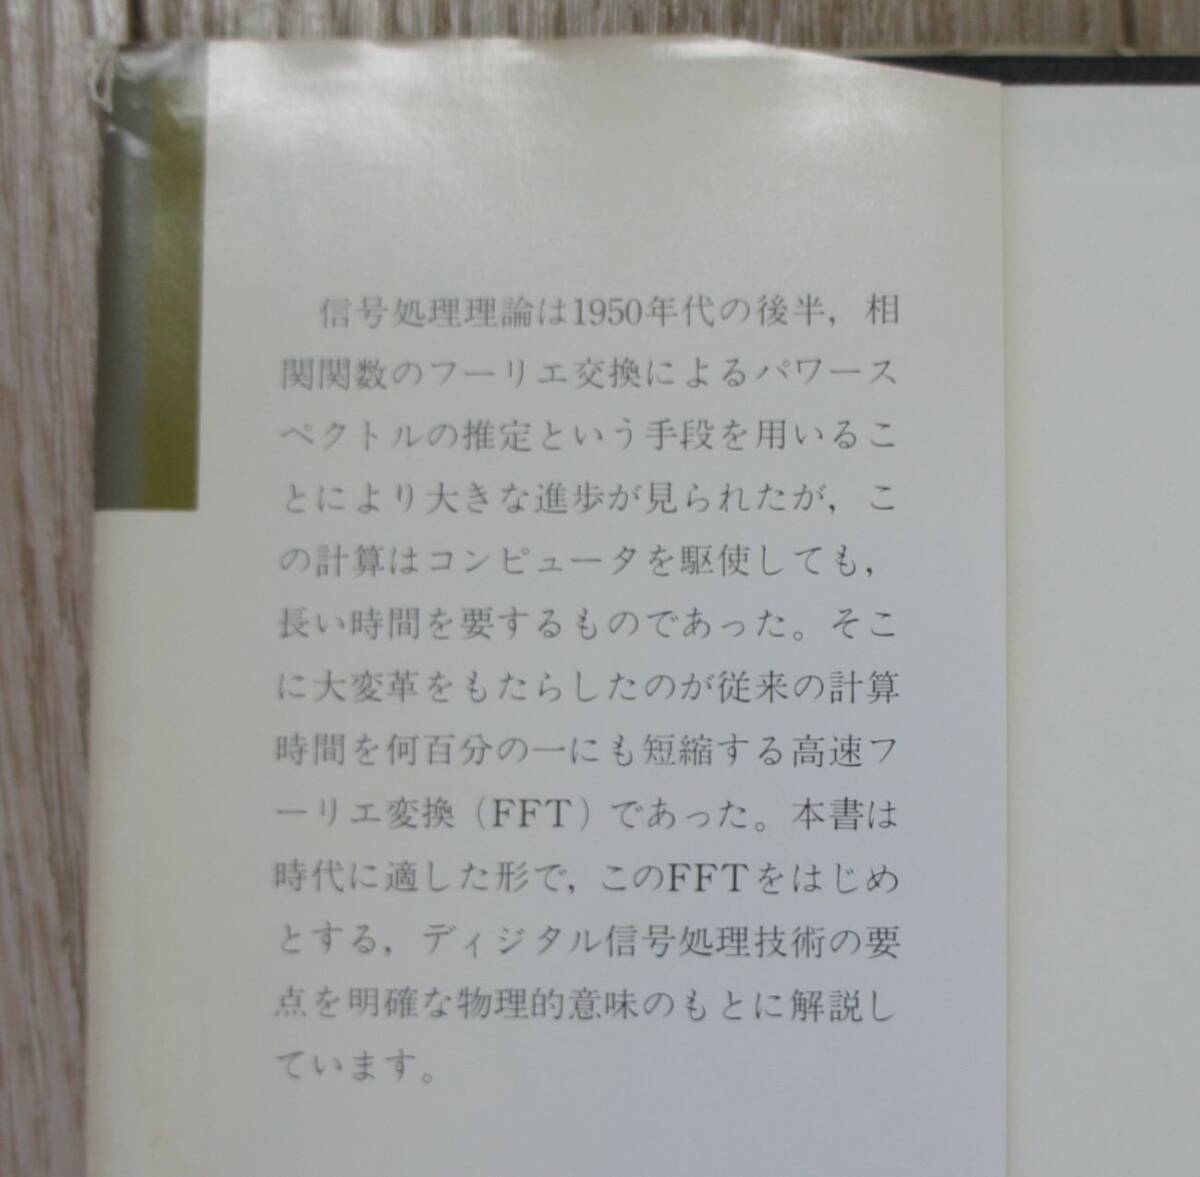 信号処理理論は1950年代の後半，相
関関数のフーリエ交換によるパワース
ペクトルの推定という手段を用いるこ
とにより大きな進歩が見られたが，こ
の計算はコンピュータを駆使しても，
長い時間を要するものであった。そこ
に大変革をもたらしたのが従来の計算
時間を何百分の一にも短縮する高速フ
ーリエ変換（FFT）であった。本書は
時代に適した形で，このFFTをはじめ
とする，ディジタル信号処理技術の要
点を明確な物理的意味のもとに解説し
ています。